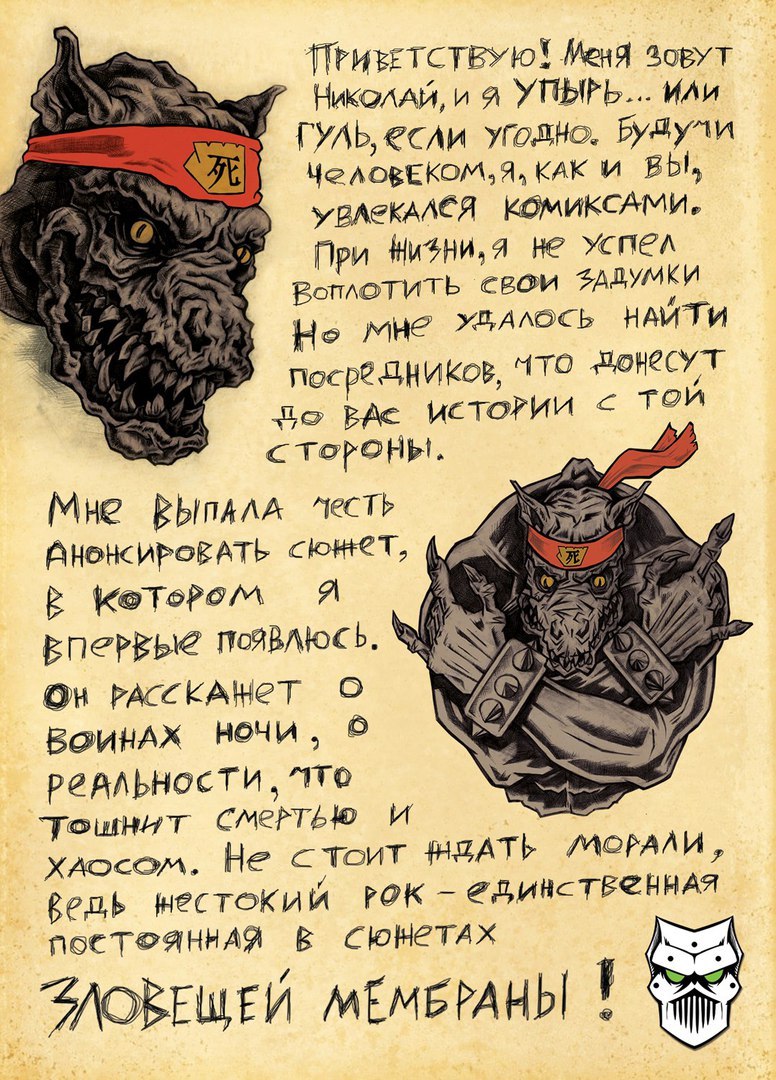 Приветствую! Меня зовут
Николай, и я УПЫРЬ... или
гуль, если угодно. Будучи
человеком, я, как и вы,
увлекался комиксами.
При жизни, я не успел
воплотить свои задумки
Но мне удалось найти
посредников, что донесут
до вас истории с той
стороны.
死
Мне выпала честь
анонсировать сюжет,
в котором я
впервые появлюсь.
Он расскажет о
воинах ночи, о
реальности, что
тошнит смертью и
хаосом. Не стоит ждать морали,
ведь жестокий рок – единственная
постоянная в сюжетах
ЗЛОВЕЩЕЙ МЕМБРАНЫ!
死